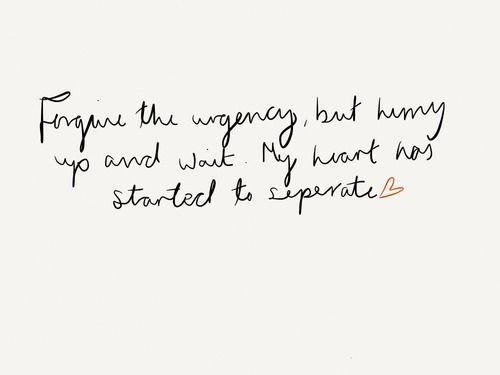 Forgive the urgency, but hurry
up and wait. My heart has
started to seperate